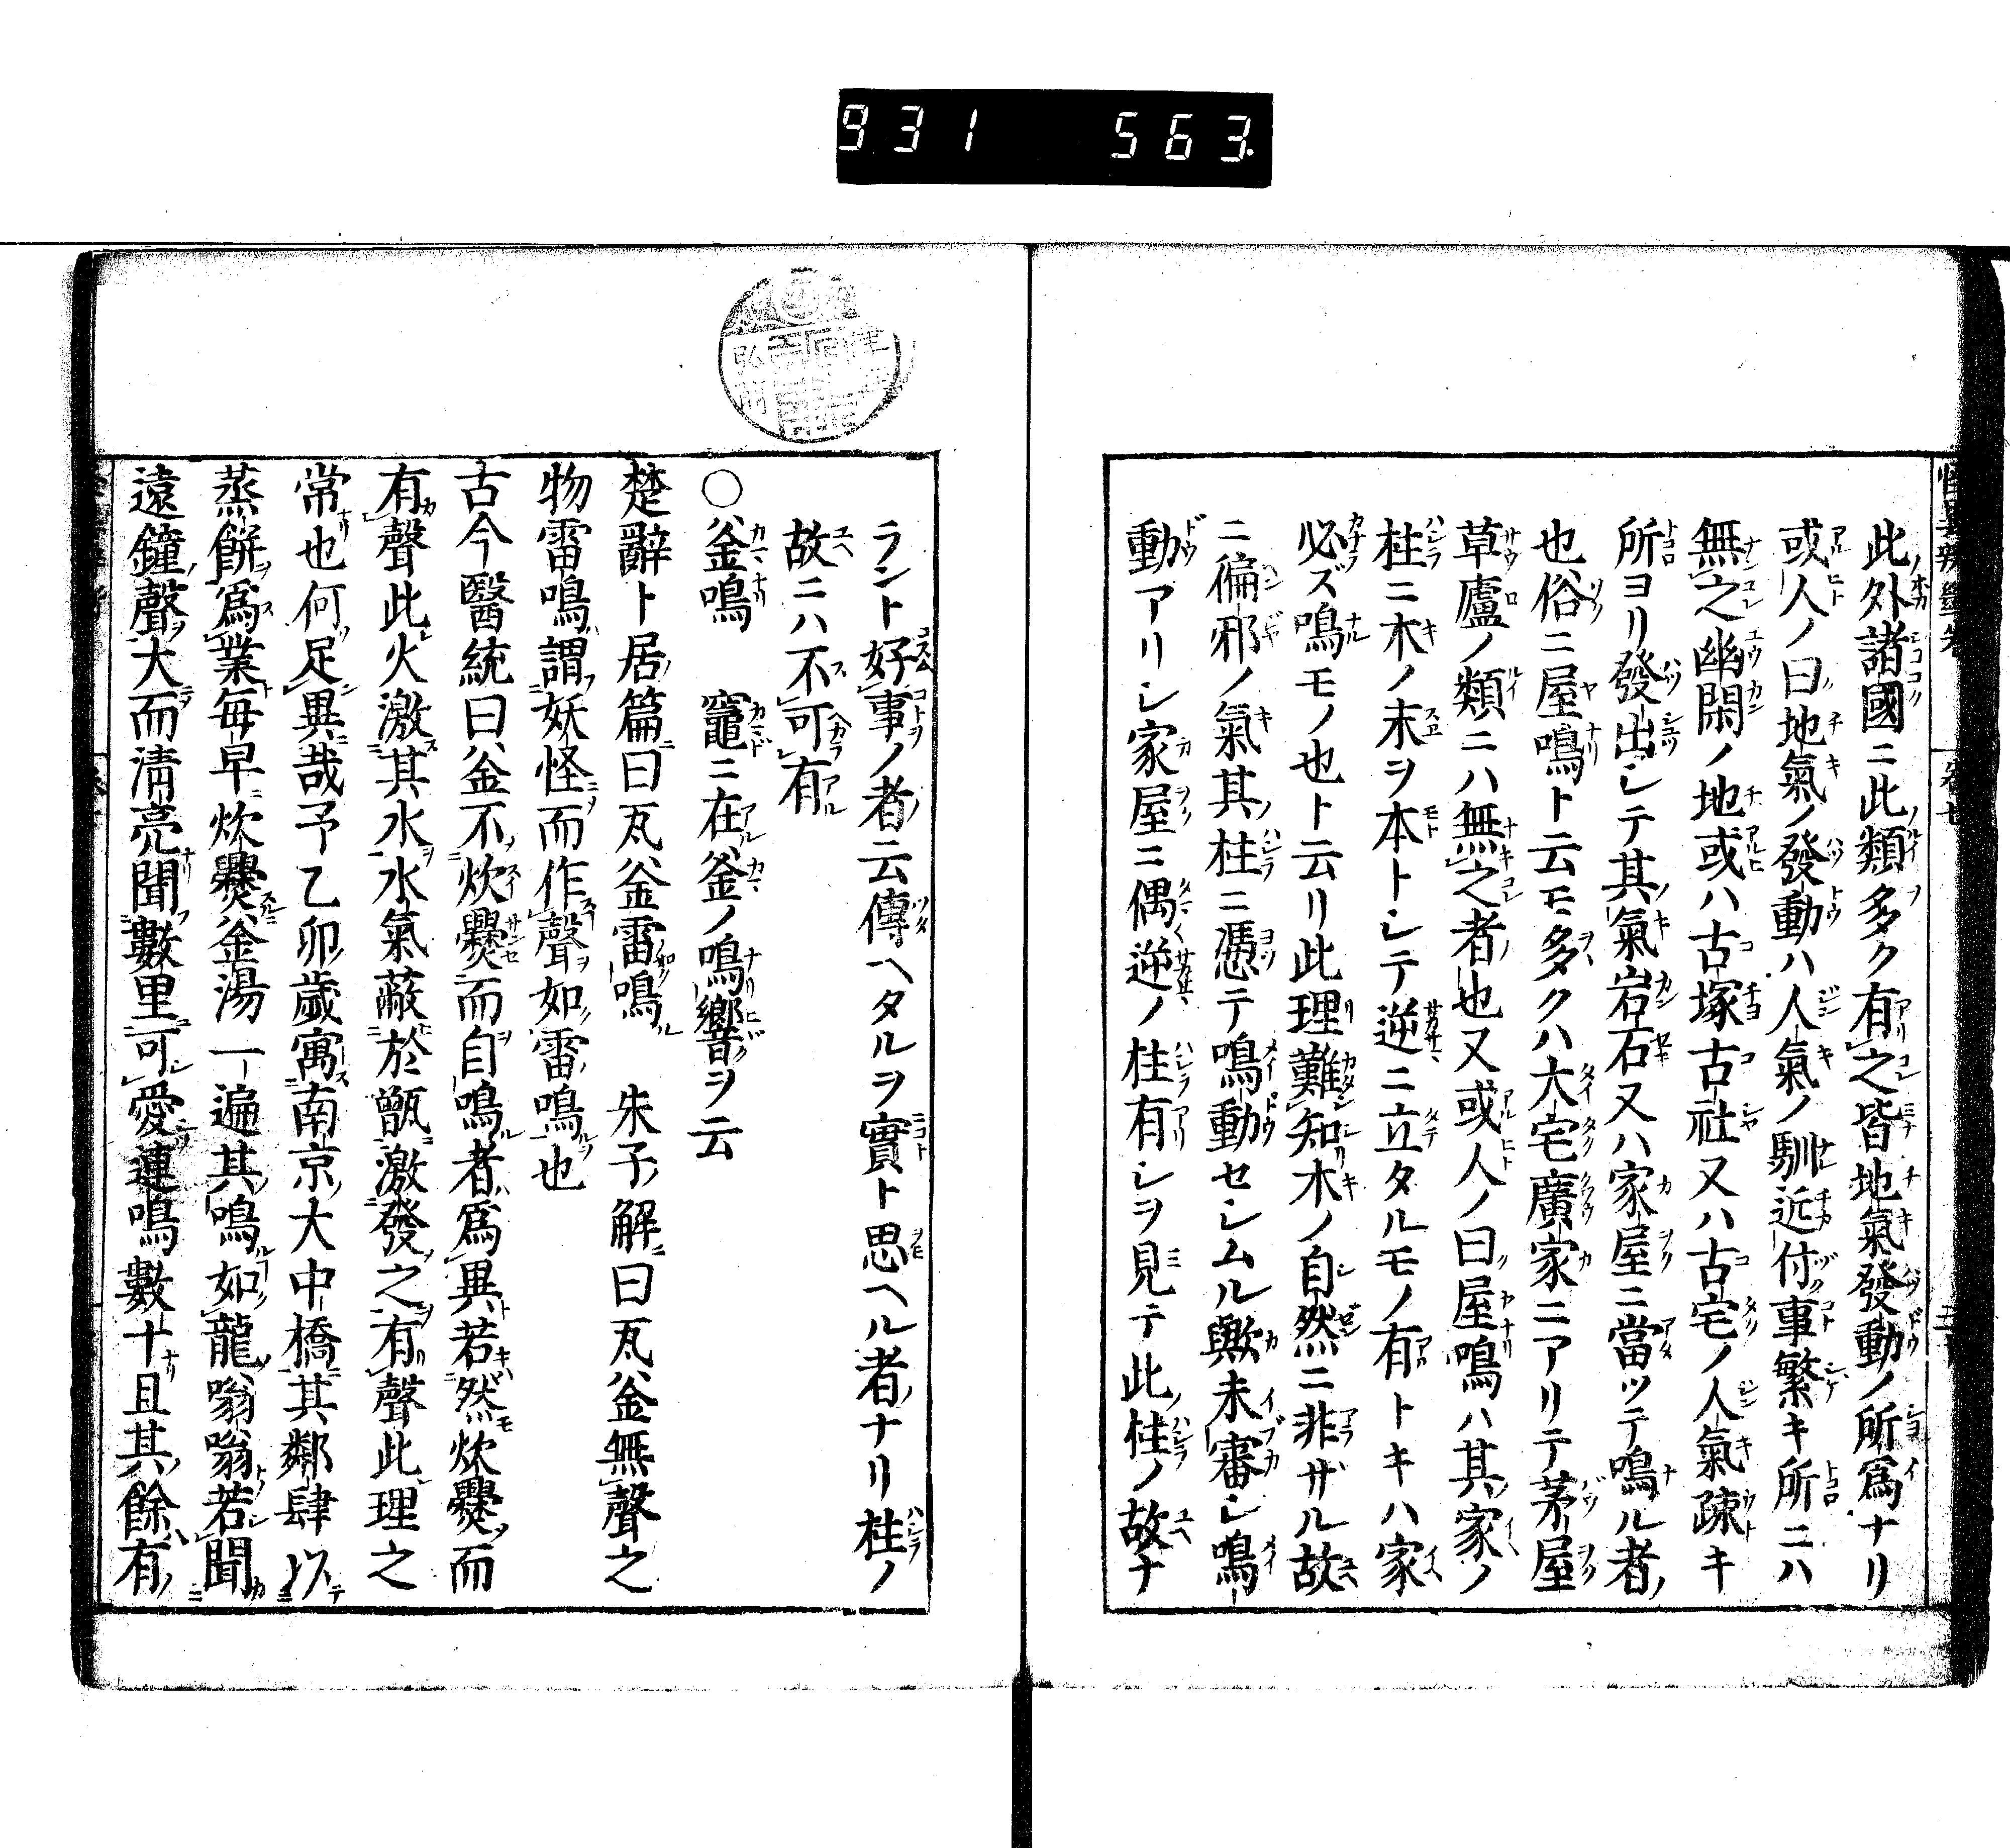 931 563
此外諸國ニ此類多ク有之皆地氣發動ノ所爲ナリ
或人ノ曰地氣ノ發動ハ人氣ノ馴近付事繁キ所ニハ
無之幽閑ノ地或ハ古塚古社又ハ古宅ノ人氣疎キ
所ヨリ發出シテ其氣岩石又ハ家屋ニ當ツテ鳴ル者
也俗ニ屋鳴ト云モ多クハ大宅廣家ニアリテ茅屋
草廬ノ類ニハ無之者也又或人ノ曰屋鳴ハ其家ノ
柱ニ木ノ末ヲ本トシテ逆ニ立タルモノ有トキハ家
必ズ鳴モノ也ト云リ此理難知木ノ自然ニ非ザル故
ニ偏邪ノ氣其柱ニ憑テ鳴動セシムル歟未審シ鳴
動アリシ家屋ニ偶逆ノ柱有シヲ見テ此柱ノ故ナ
ラント好事ノ者云傳ヘタルヲ實ト思ヘル者ナリ柱ノ
故ニハ不可有
○釜鳴 竈ニ在釜ノ鳴響ヲ云
楚辭卜居篇曰瓦釜雷鳴 朱子解曰瓦釜無聲之
物雷鳴謂妖怪而作聲如雷鳴也
古今醫統曰釜不炊爨而自鳴者爲異若然炊爨而
有聲此火激其水水氣蔽於甑激發之有聲此理之
常也何足異哉予乙卯歲寓南京大中橋其鄰肆以
蒸餅爲業每早炊爨釜湯一遍其鳴如龍嗡嗡若聞
遠鐘聲大而清亮聞數里可愛連鳴數十且其餘有